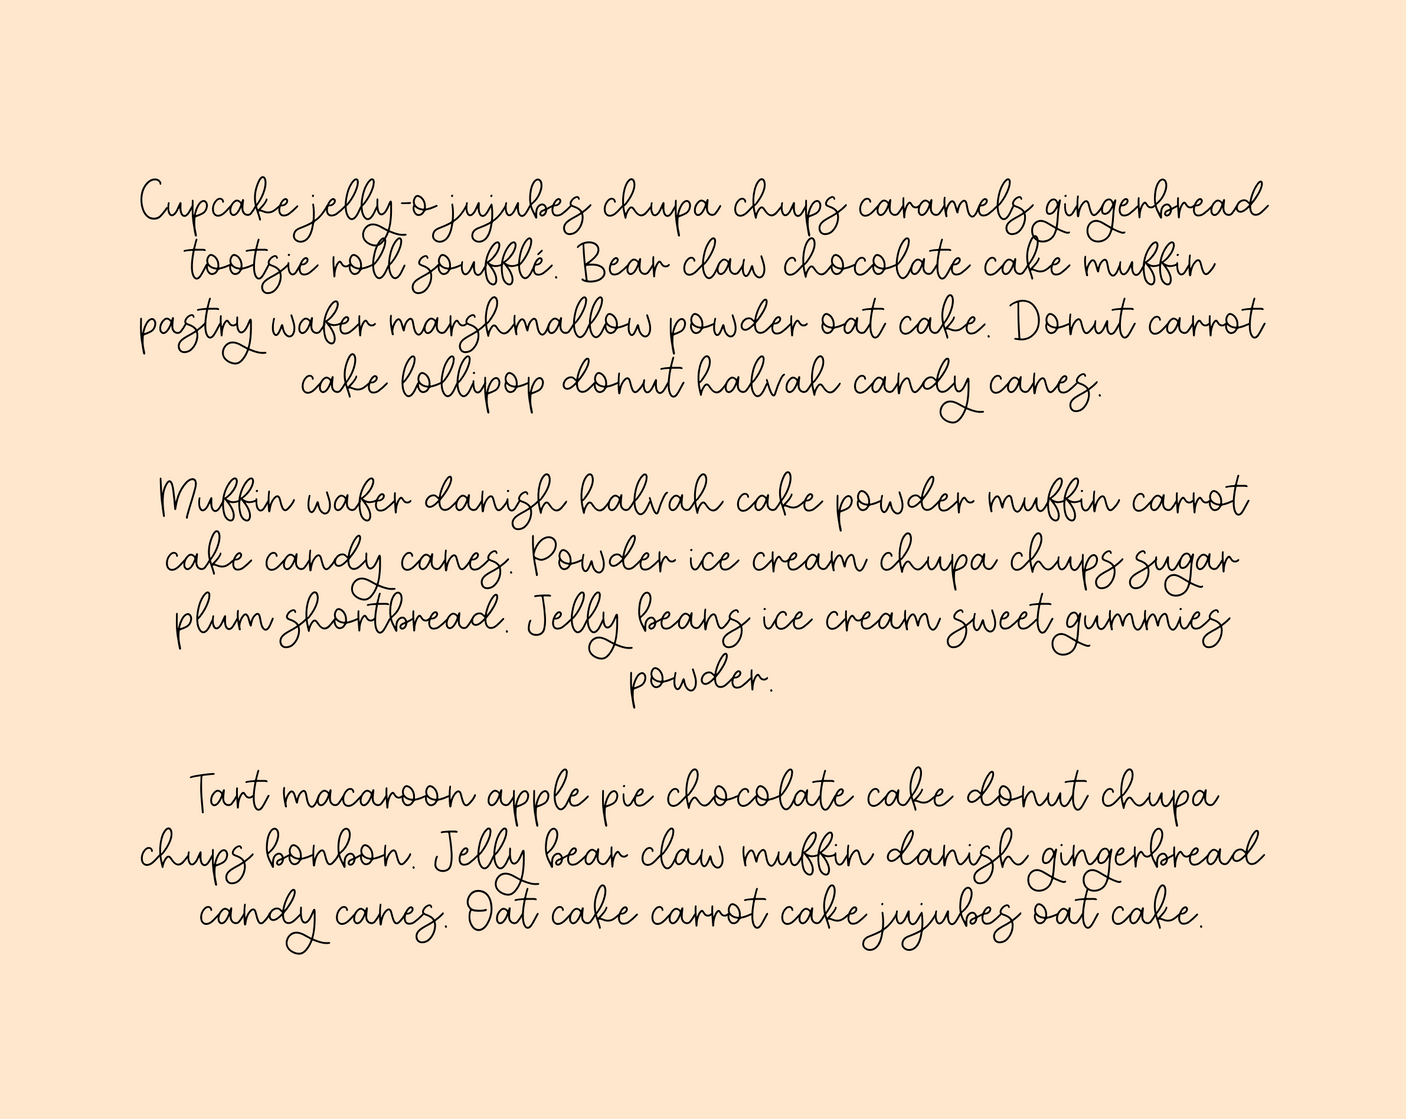 Cupcake jelly-o jujubes chupa chups caramels gingerbread
tootsie roll soufflé. Bear claw chocolate cake muffin
pastry wafer marshmallow powder oat cake. Donut carrot
cake lollipop donut halvah candy canes.
Muffin wafer danish halvah cake powder muffin carrot
cake candy canes. Powder ice cream chupa chups sugar
plum shortbread. Jelly beans ice cream sweet gummies
powder.
Tart macaroon apple pie chocolate cake donut chupa
chups bonbon. Jelly bear claw muffin danish gingerbread
candy canes. Oat cake carrot cake jujubes oat cake.